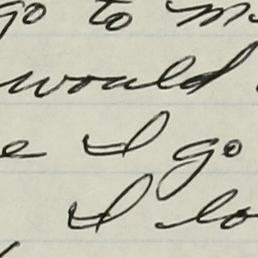 go to
would
I go
I lo